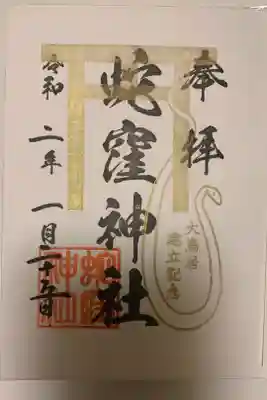 奉拝
大鳥居
建立記念
蛇窪神社
令和二年一月二十五日